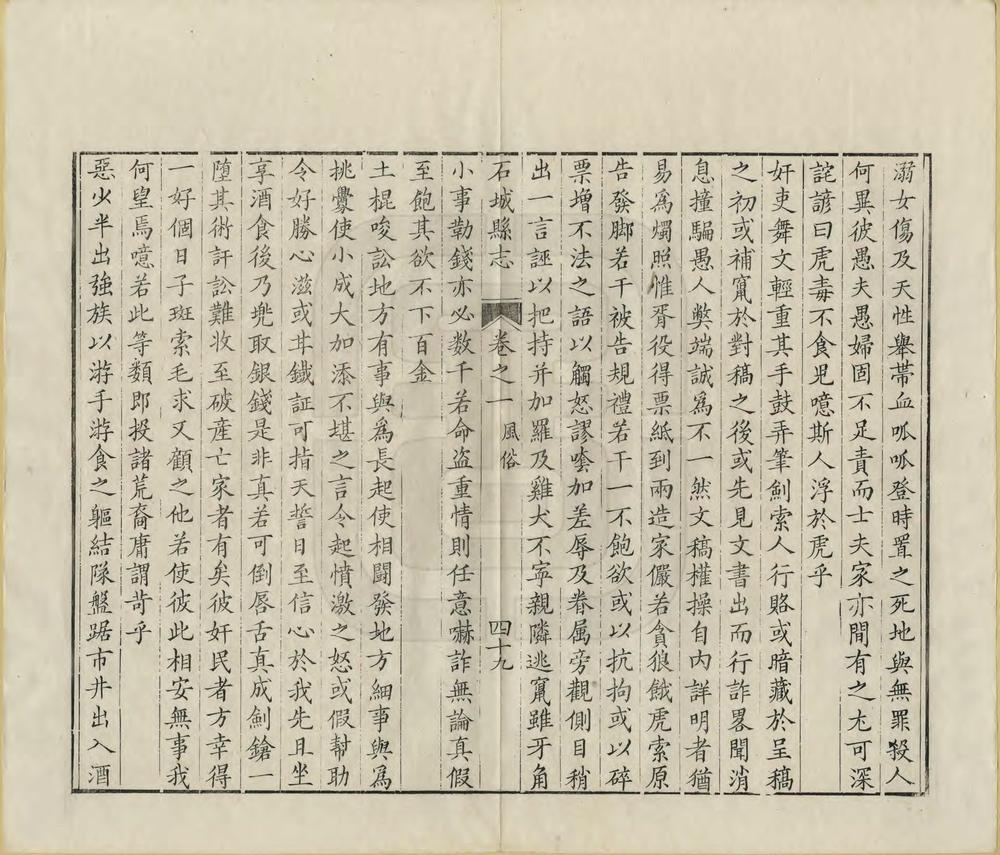 溺女傷及天性舉蒂血呱呱登時置之死地與無罪殺人
何異彼愚夫愚婦固不足責而士夫家亦間有之尤可深
詫諺曰虎毒不食児噫斯人浮於虎乎
奸吏舞文輕重其手鼓弄筆劍索人行賂或暗藏於呈稿
之初或補竄於對稿之後或先見文書出而行詐畧聞消
息撞騙愚人獘端誠為不一然文稿權操自内詳明者猶
易為燭照惟胥役得票紙到兩造家儼若貪狼餓虎索原
告發脚若干被告規禮若干一不飽欲或以抗拘或以碎
票增不法之語以觸怒謬唫加差辱及眷属旁觀側目稍
出一言誣以把持并加羅及雞犬不寜親隣逃竄雖牙角
石城縣志
卷之一
風俗
四十九
小事勒錢亦必数千若命盜重情則任意嚇詐無論真假
至飽其欲不下百金
土棍唆訟地方有事與為長起使相鬪發地方細事與為
挑釁使小成大加添不堪之言令起憤激之怒或假幇助
令好勝心滋或甘鐵証可指天誓日至信心於我先且坐
享酒食後乃兠取銀錢是非真若可倒唇舌真成劍鎗一
墮其術訐訟難收至破産亡家者有矣彼奸民者方幸得
一好個日子斑索毛求又顧之他若使彼此相安無事我
何望焉噫若此等類即投諸荒裔庸謂苛乎
惡少半出強族以游手游食之軀結隊盤踞市井出入酒